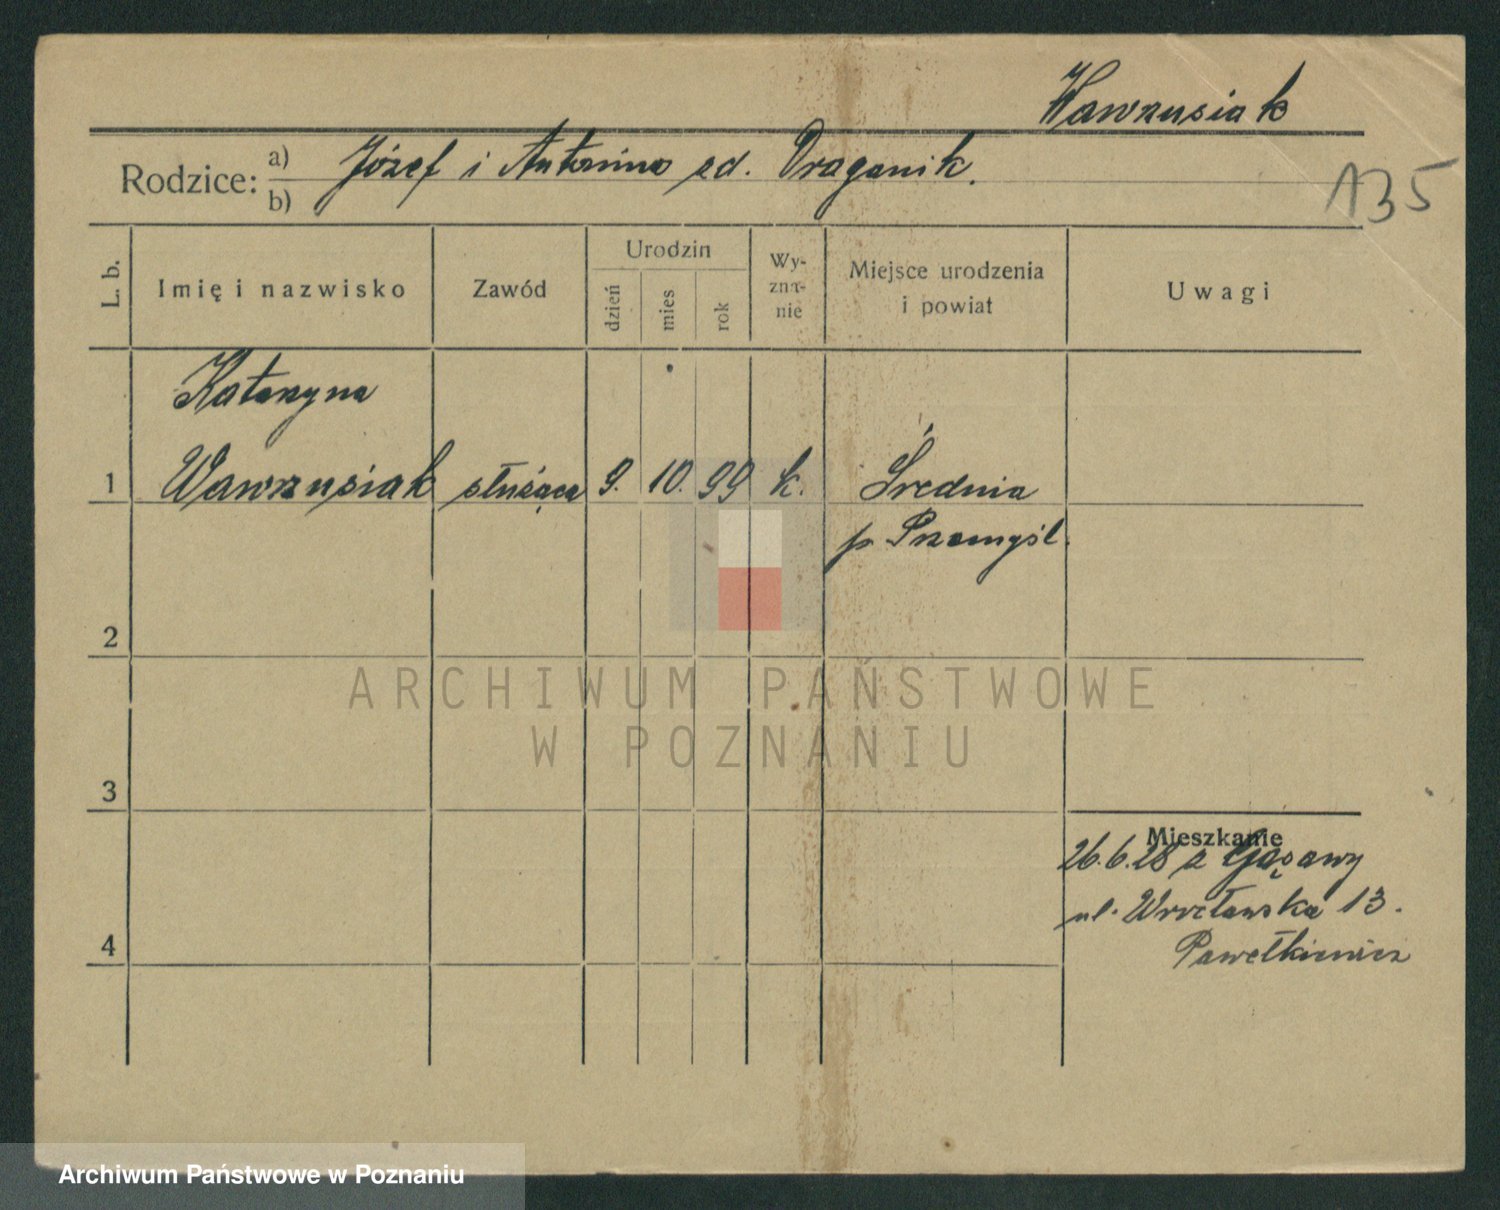 Wawrzusiak
Rodzice: a) Józef i Antonina zd. Draganik.
b)
135
L. b.
Imię i nazwisko
Zawód
Urodzin
dzień
mies
rok
Wy-
zna-
nie
Miejsce urodzenia
i powiat
Uwagi
Katarzyna
1 Wawrzusiak służąca 9. 10. 99 k. Średnia
p. Przemyśl.
2
3
4
Mieszkanie
26.6.28 z Gąsawy
ul. Wrocławska 13.
Pawełkiewicz
ARCHIWUM PAŃSTWOWE
W POZNANIU
Archiwum Państwowe w Poznaniu